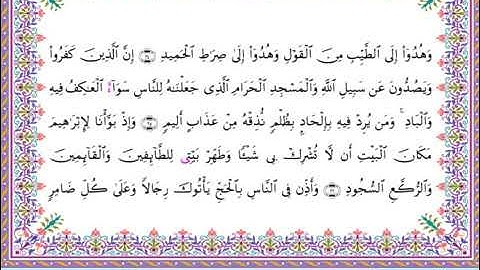 وَهُدُوٓا۟ إِلَى ٱلطَّيِّبِ مِنَ ٱلْقَوْلِ وَهُدُوٓا۟ إِلَىٰ صِرَٰطِ ٱلْحَمِيدِ ۝٢٤ إِنَّ ٱلَّذِينَ كَفَرُوا۟
وَيَصُدُّونَ عَن سَبِيلِ ٱللَّهِ وَٱلْمَسْجِدِ ٱلْحَرَامِ ٱلَّذِى جَعَلْنَٰهُ لِلنَّاسِ سَوَآءً ٱلْعَٰكِفُ فِيهِ
وَٱلْبَادِ ۚ وَمَن يُرِدْ فِيهِ بِإِلْحَادٍۭ بِظُلْمٍ نُّذِقْهُ مِنْ عَذَابٍ أَلِيمٍ ۝٢٥ وَإِذْ بَوَّأْنَا لِإِبْرَٰهِيمَ
مَكَانَ ٱلْبَيْتِ أَن لَّا تُشْرِكْ بِى شَيْـًٔا وَطَهِّرْ بَيْتِىَ لِلطَّآئِفِينَ وَٱلْقَآئِمِينَ
وَٱلرُّكَّعِ ٱلسُّجُودِ ۝٢٦ وَأَذِّن فِى ٱلنَّاسِ بِٱلْحَجِّ يَأْتُوكَ رِجَالًا وَعَلَىٰ كُلِّ ضَامِرٍ